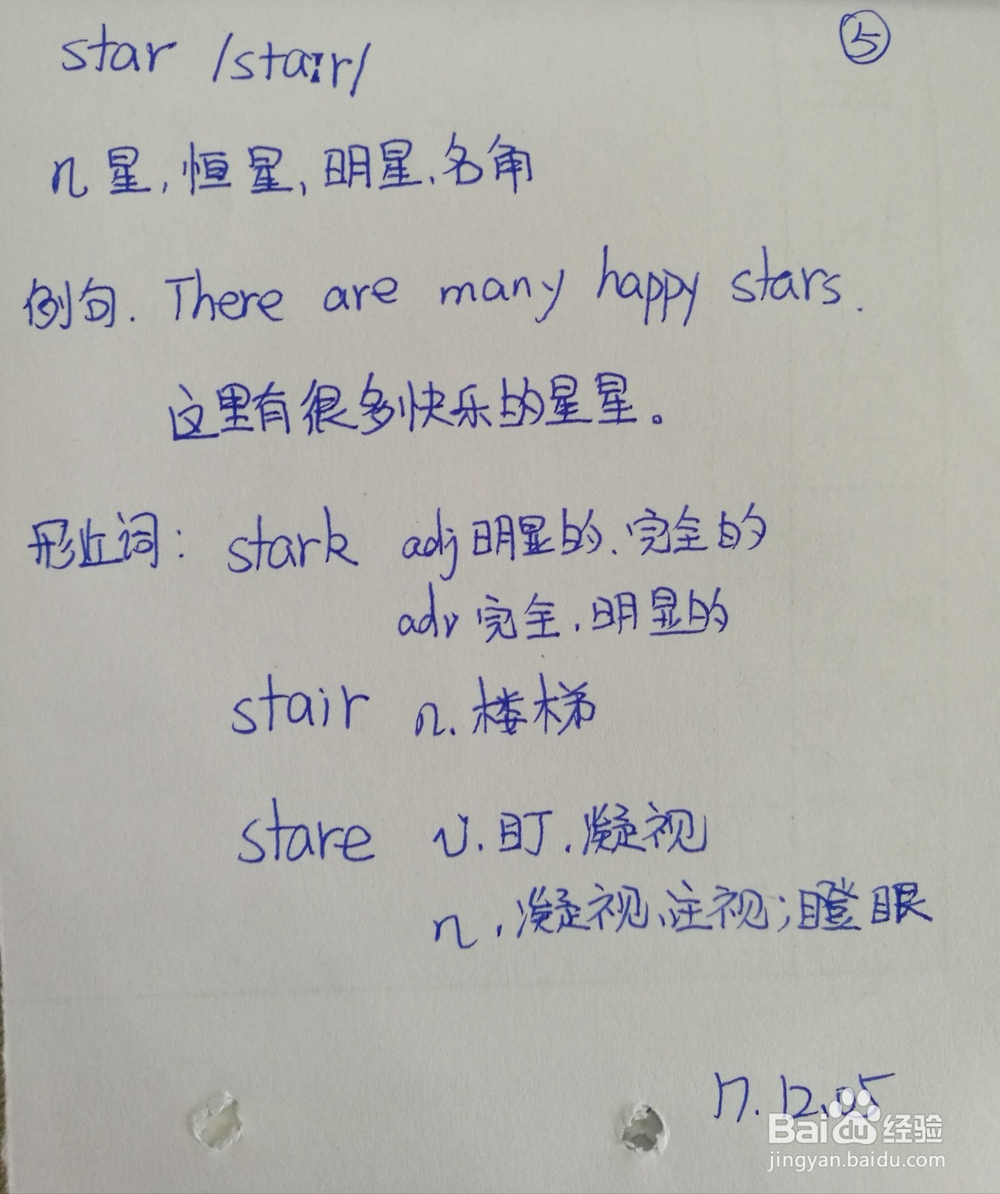 star /sta:r/ ⑤
n 星,恒星、明星、名角
例句. There are many happy stars.
这里有很多快乐的星星。
形近词: stark adj 明显的、完全的
adv 完全、明显的
stair n. 楼梯
stare v. 盯、凝视
n. 凝视、注视;瞪眼
17.12.05
Baidu 经验
jingyan.baidu.com